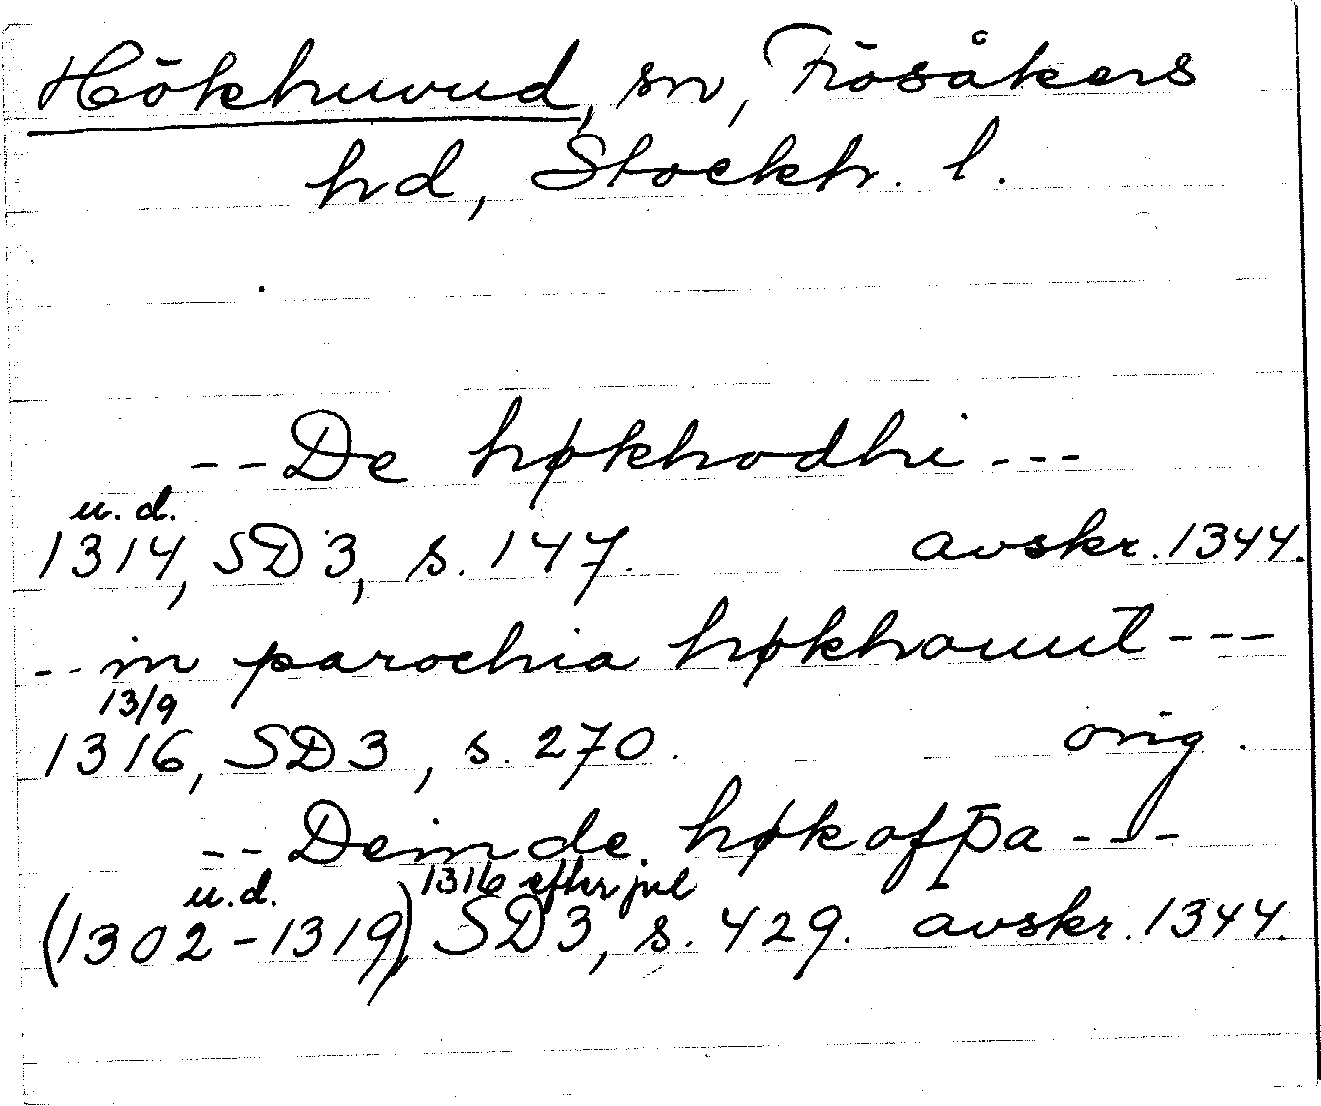 Hökhuvud, sn, Frösåkers
hd, Stockh. l.
--De høkhodhi---
u. d.
1314, SD3, s. 147. avskr. 1344.
--in parochia høkhouut---
13/9
1316, SD3, s. 270. orig.
--Deinde. høkofþa---
u.d. 1316 efter jul
(1302-1319) SD3, s. 429. avskr. 1344.